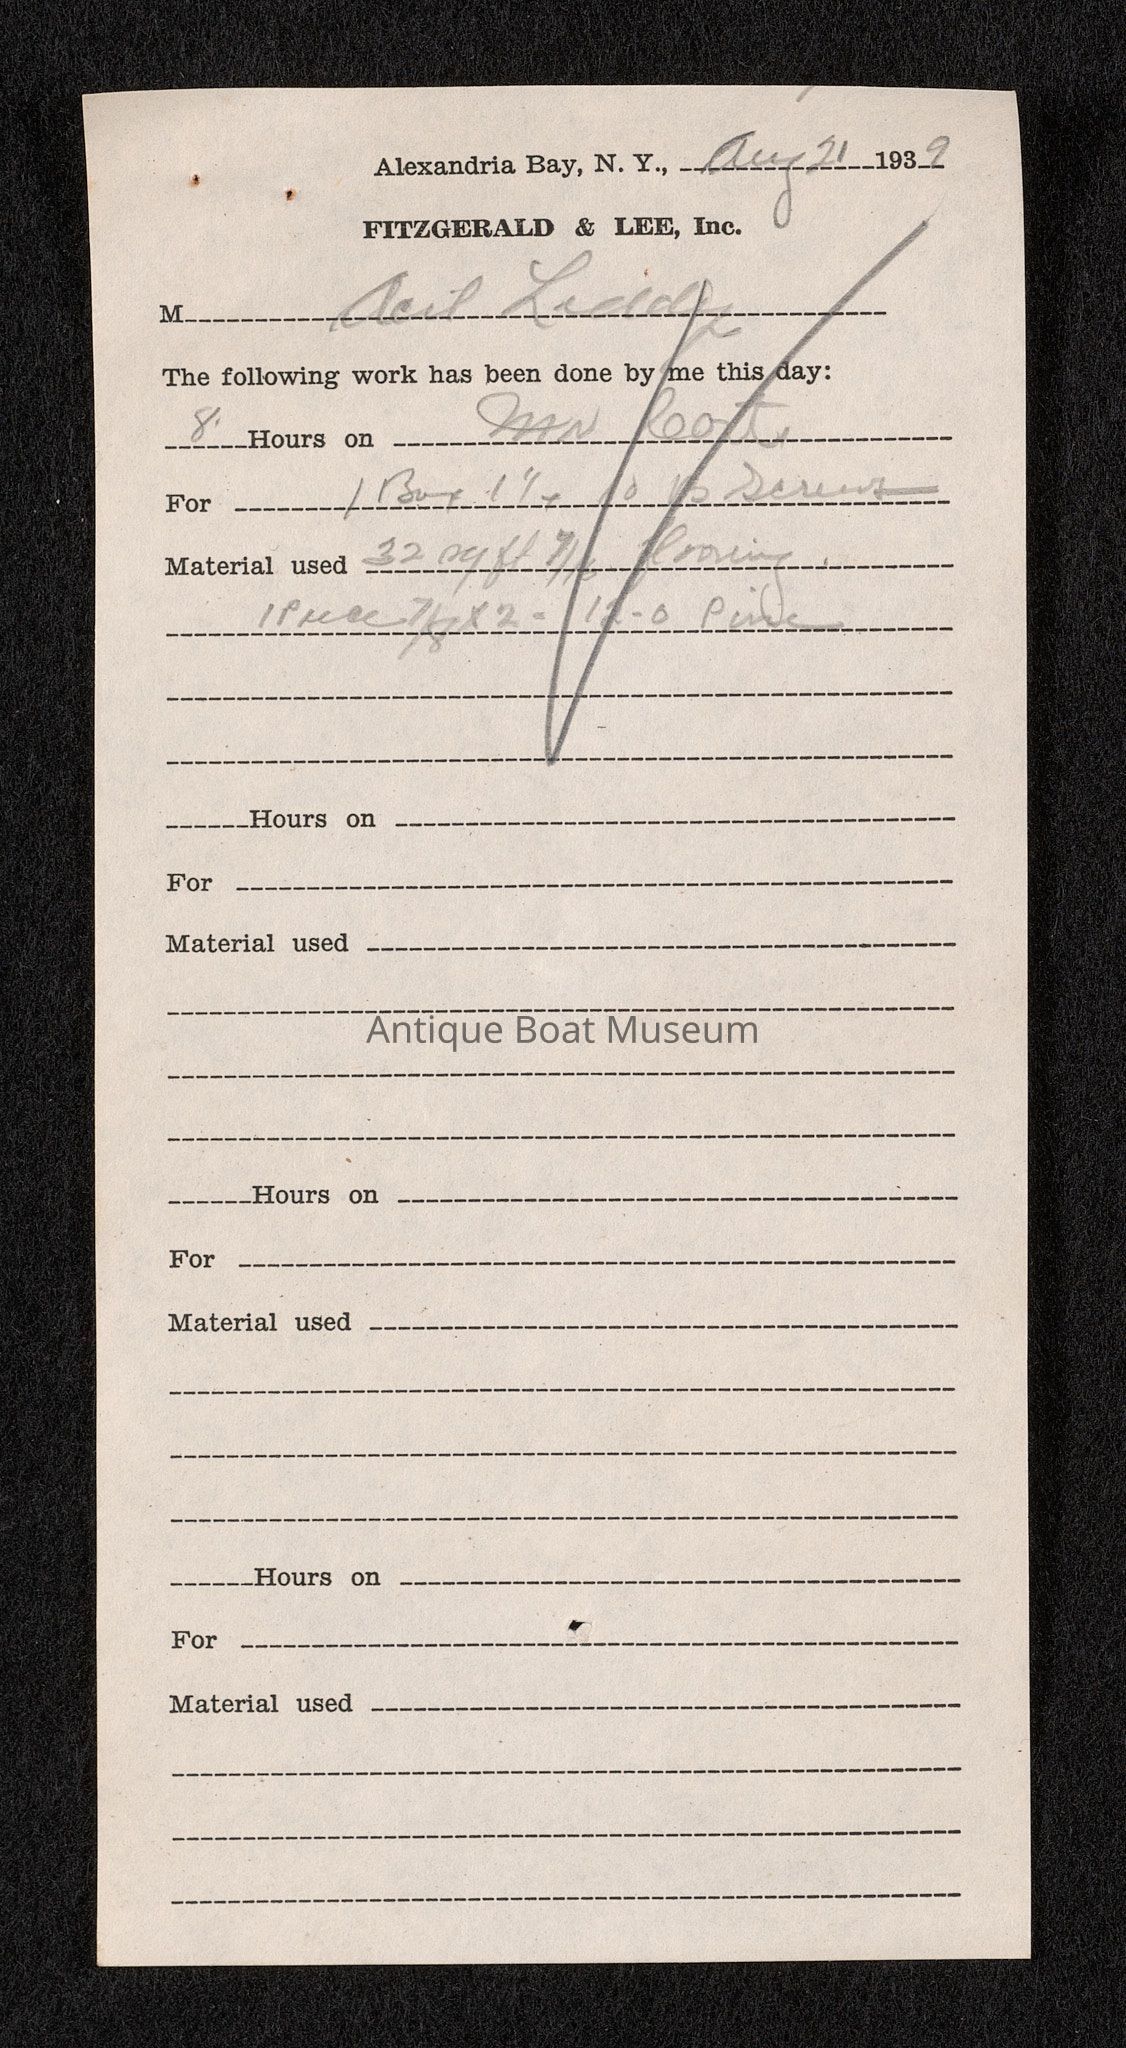 Alexandria Bay, N. Y., Aug 21 1939
FITZGERALD & LEE, Inc.
M Liddy
The following work has been done by me this day:
8 Hours on
For 1 Box 1 1/4 10 Screws
Material used 32 sq ft 7/16 flooring
1 Piece 7/8 x 2 - 12-0 Pine
Hours on
For
Material used
Antique Boat Museum
Hours on
For
Material used
Hours on
For
Material used